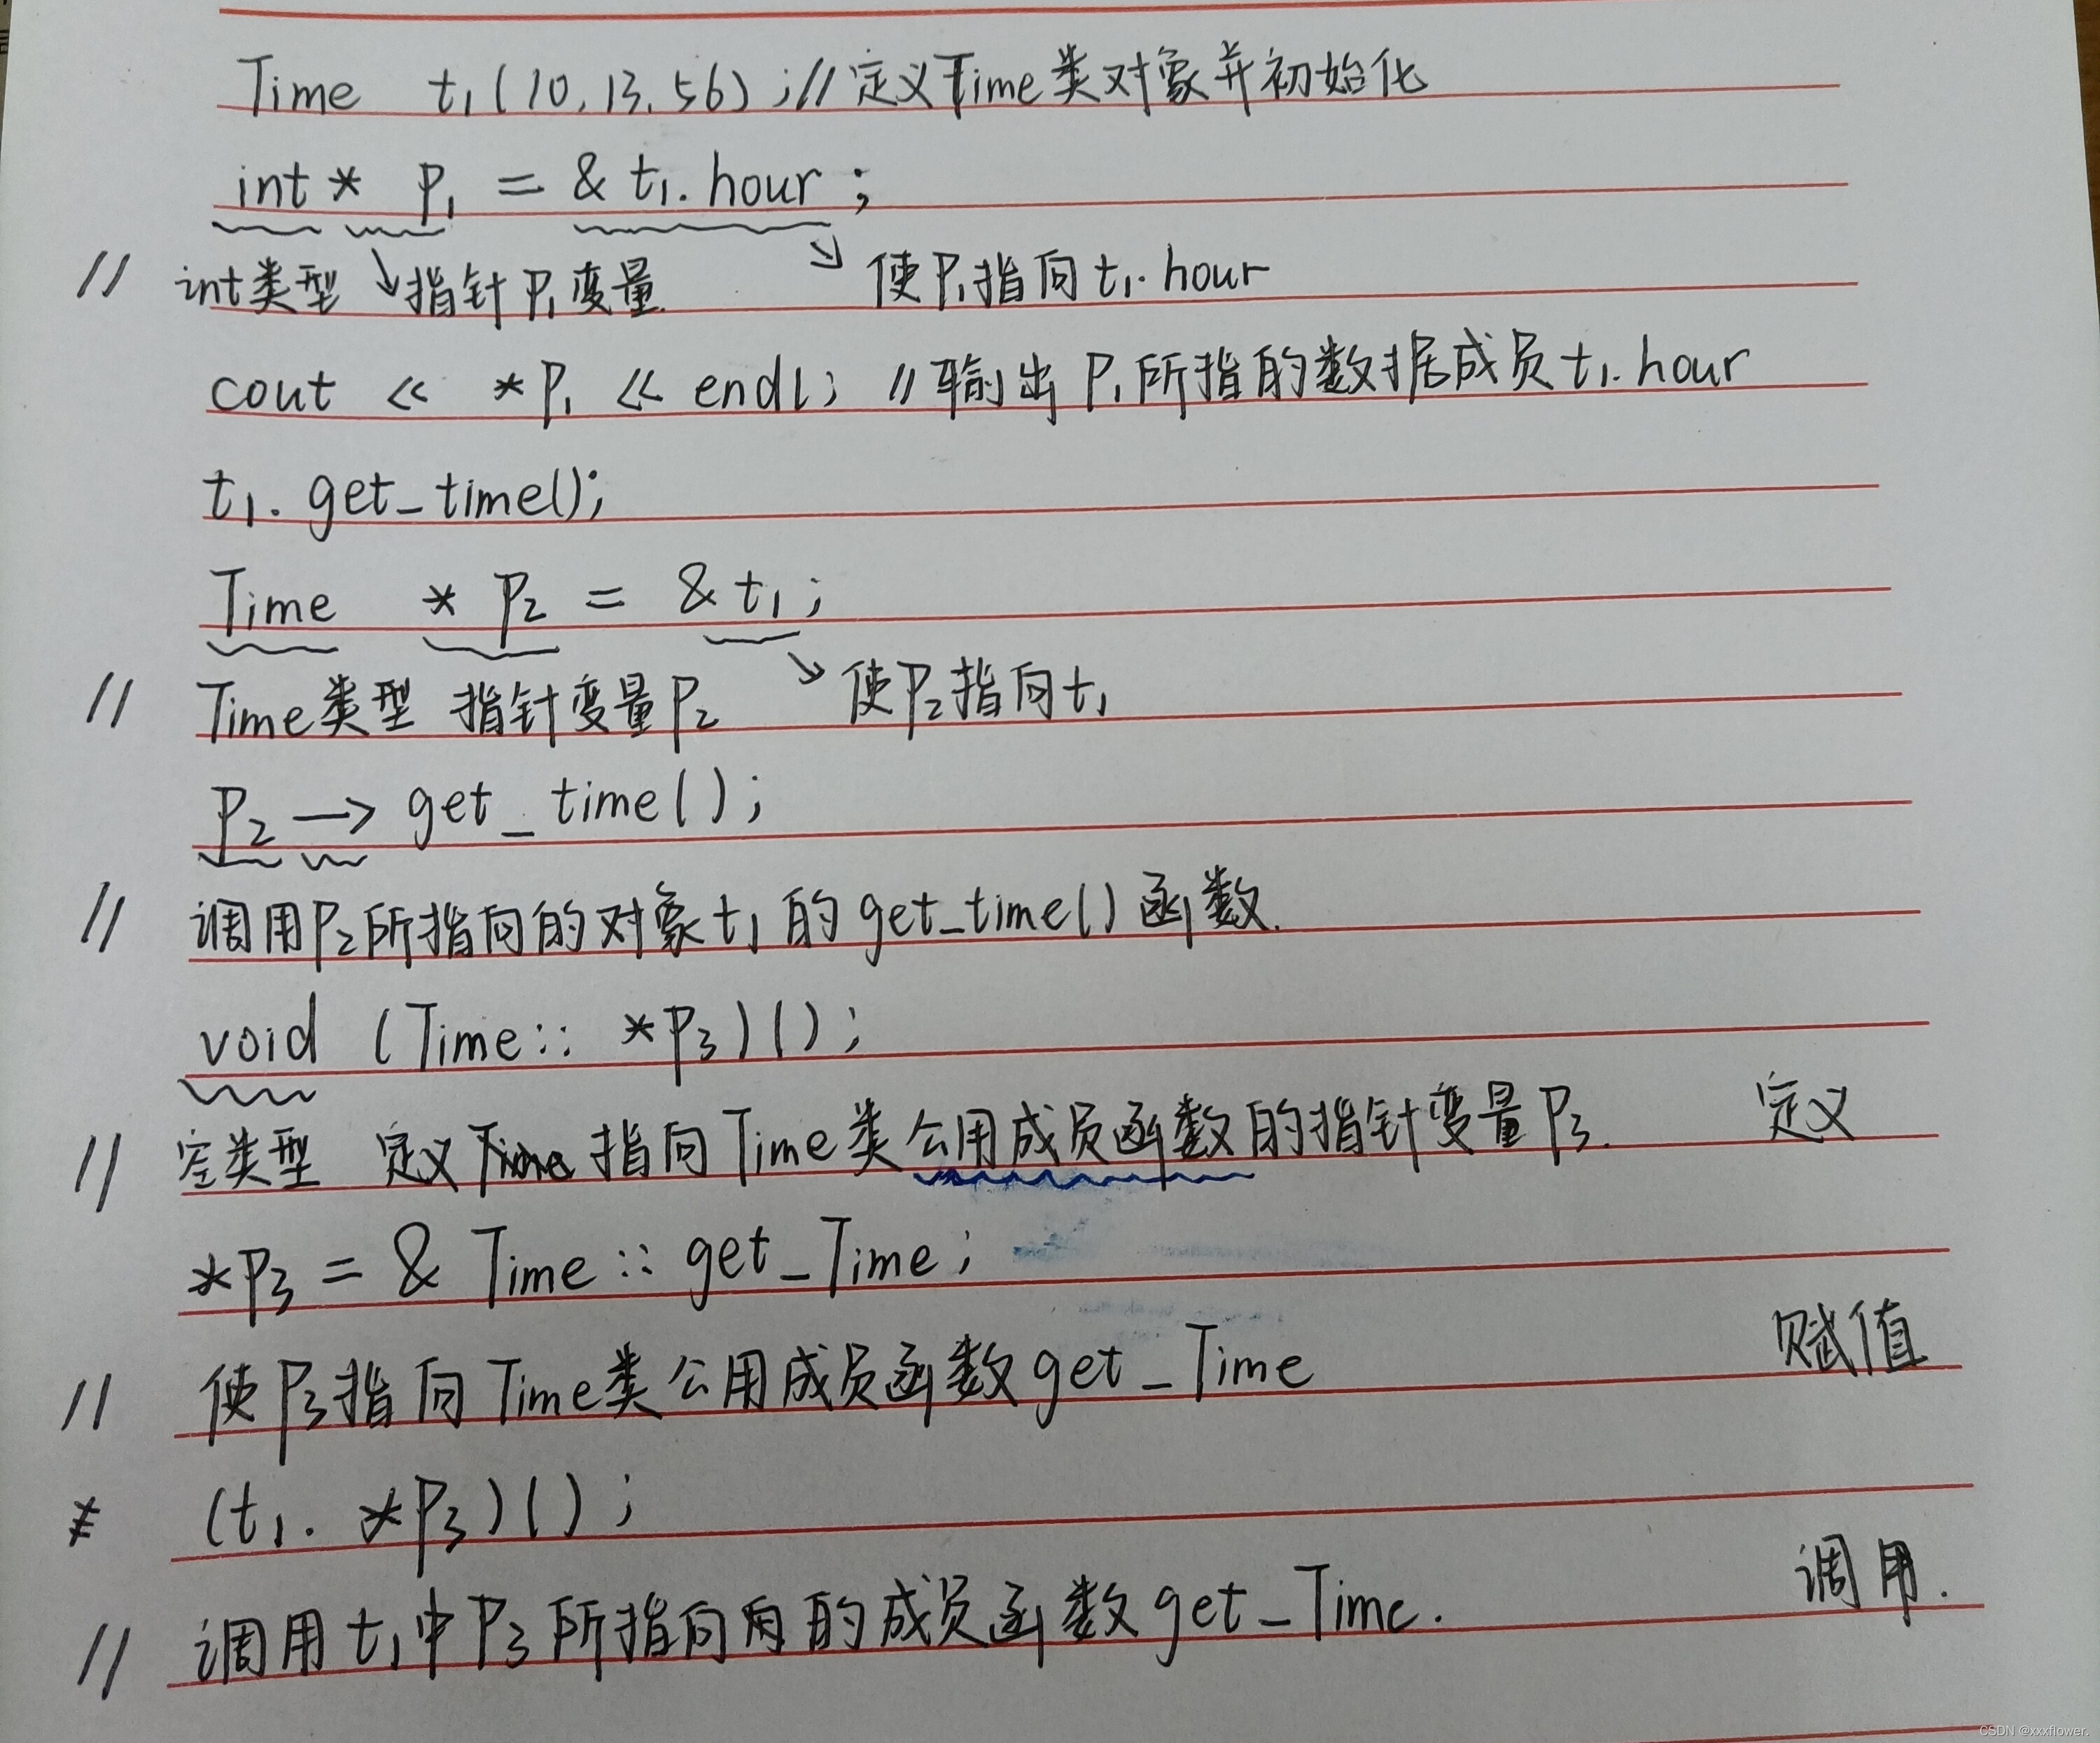 Time t1(10,13,56);//定义Time类对象并初始化
int* p1 = &t1.hour;
// int类型 指针p1变量. 使p1指向t1.hour
cout << *p1 << endl; //输出p1所指的数据成员t1.hour
t1.get_time();
Time *p2 = &t1;
// Time类型 指针变量p2 使p2指向t1
p2→get_time();
// 调用p2所指向的对象t1的get_time()函数.
void (Time:: *p3)();
// 空类型 定义Time指向Time类公用成员函数的指针变量p3. 定义
*p3 = &Time::get_Time;
赋值
// 使p3指向Time类公用成员函数get_Time
(t1.*p3)();
调用.
// 调用t1中p3所指向的成员函数get_Time.
CSDN @xxxflower.